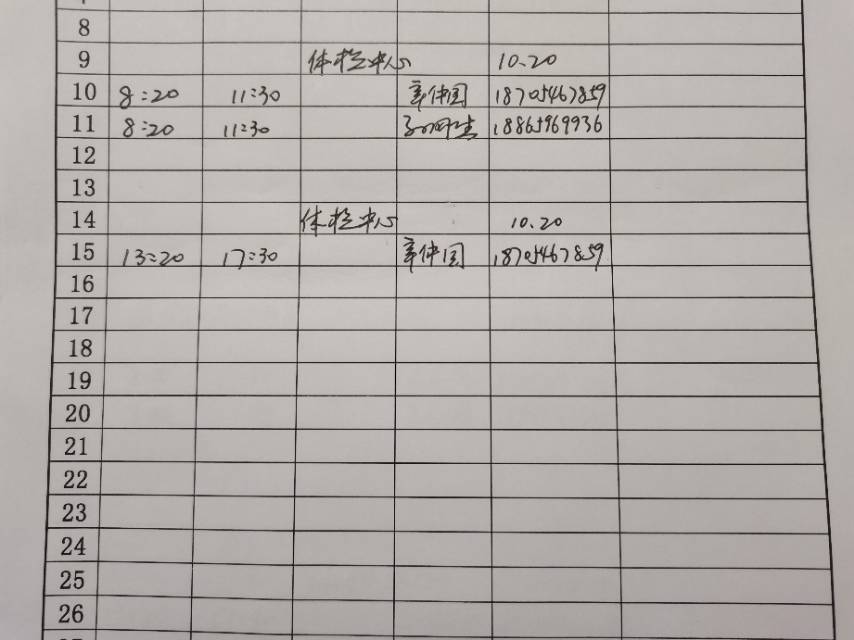 8
9 体检中心 10.20
10 8:20 11:30 18705467859
11 8:20 11:30 18865969936
12
13
14 体检中心 10.20
15 13:20 17:30 18705467859
16
17
18
19
20
21
22
23
24
25
26